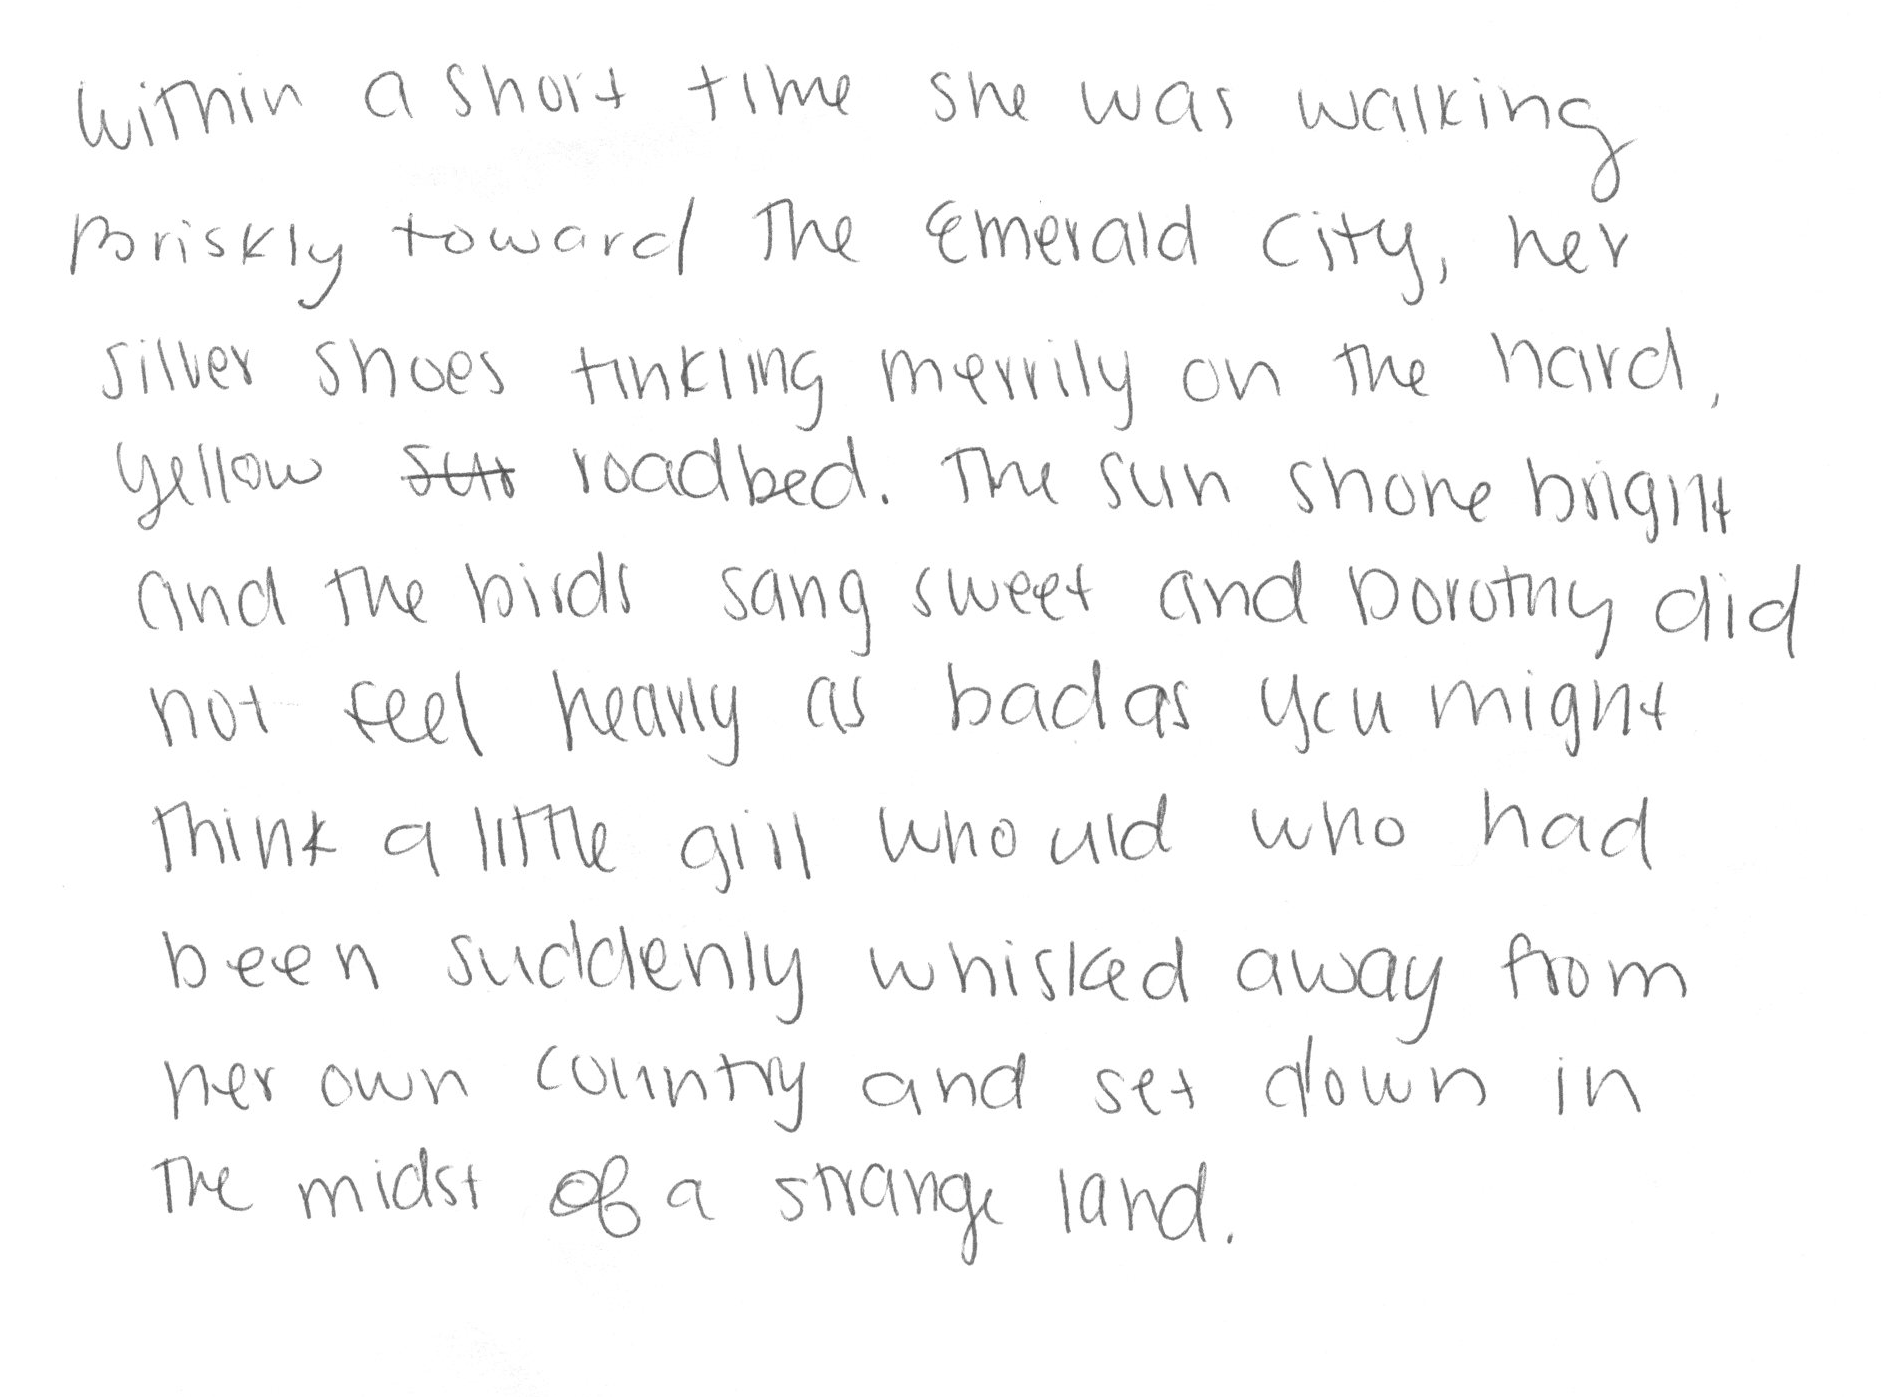 Within a short time she was walking
Briskly toward The Emerald City, her
silver shoes tinkling merrily on the hard,
yellow roadbed. The sun shone bright
and the birds sang sweet and Dorothy did
not feel nearly as bad as you might
think a little girl whould who had
been suddenly whisked away from
her own country and set down in
The midst of a strange land.